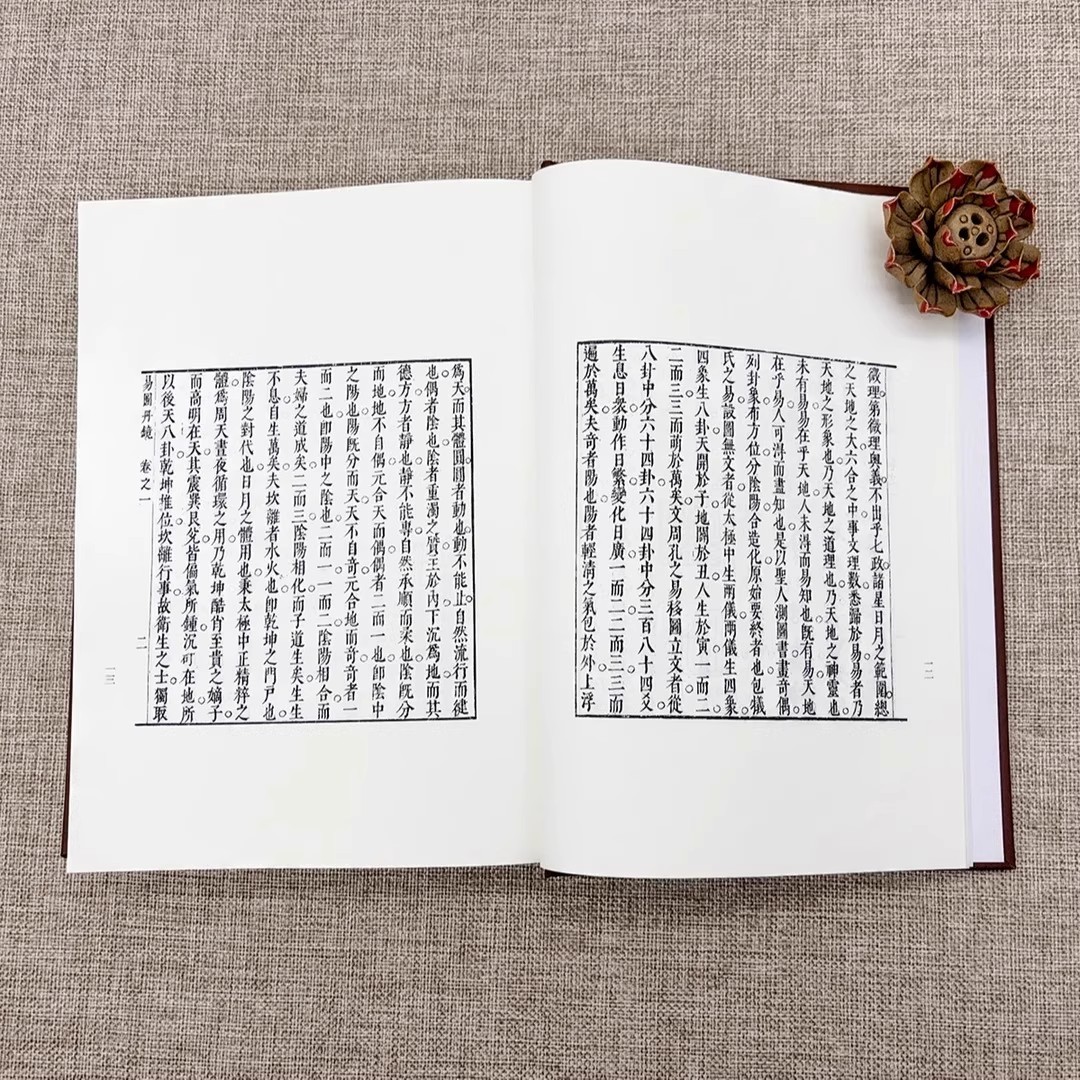 微理第微理與義不出乎七政諸星日月之範圍總
之天地之大六合之中事文理數悉歸於易易者乃
天地之形象也乃天地之道理也乃天地之神靈也
未有易易在乎天地人未淂而易知也既有易天地
在乎易人可淂而盡知也是以聖人測圖書畫奇偶
列卦象布方位分陰陽合造化原始要終者也包犧
氏之易設圖無文者從太極中生兩儀兩儀生四象
四象生八卦天開於子地闢於丑人生於寅一而二
二而三三而萌於萬矣文周孔之易移圖立文者從
八卦中分六十四卦六十四卦中分三百八十四爻
生息日衆動作日繁變化日廣一而二二而三三而
遍於萬矣夫奇者陽也陽者輕清之氣包於外上浮
一二
爲天而其體圓圓者動也動不能止自然流行而健
也偶者陰也陰者重濁之質主於內下沉爲地而其
德方方者靜也靜不能專自然承順而柔也陰既分
而地地不自偶元合天而偶偶者二而一也卽陰中
之陽也陽既分而天天不自奇元合地而奇奇者一
而二也卽陽中之陰也二而一一而二陰陽相合而
夫婦之道成矣二而三陰陽相化而子道生矣生生
不息自生萬矣夫坎離者水火也卽乾坤之門戶也
陰陽之對代也日月之體用也秉太極中正精粹之
體爲周天晝夜循環之用乃乾坤酷肖至貴之嫡子
而高明在天其震巽艮兌皆偏氣所鍾沉叮在地所
以後天八卦乾坤惟位坎離行事故衛生之士獨取
易圖丹鏡 卷之一 二
一三